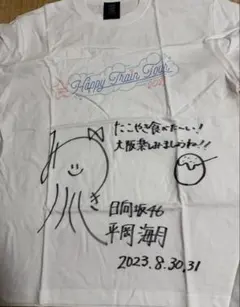 Happy Train Tour
たこやき食べたーい!
大阪楽しみましょうね!!
日向坂46
平岡海月
2023.8.30.31